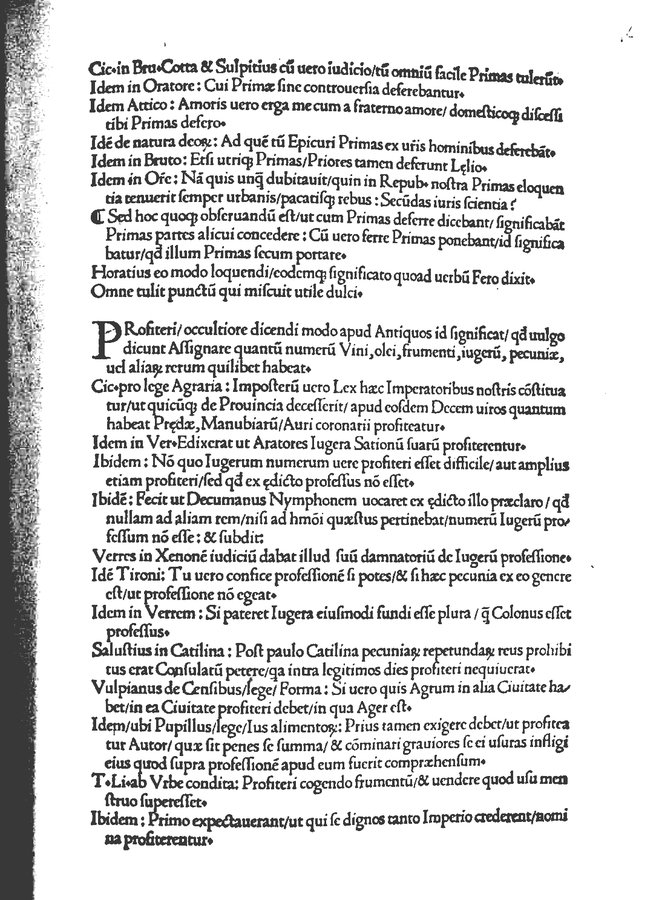 Cic.in Bru.Cotta & Sulpitius cū uero iudicio/tū omniū facile Primas tulerūt.
Idem in Oratore : Cui Primæ ſine controuerſia deferebantur.
Idem Attico : Amoris uero erga me cum a fraterno amore/ domeſticoqꝫ diſceſſi
tibi Primas defero.
Idē de natura deoꝝ : Ad quē tū Epicuri Primas ex ur̄is hominibus deferebāt.
Idem in Bruto : Etſi utriqꝫ Primas/Priores tamen deferunt Lęlio.
Idem in Or̄e : Nā quis unq̄ dubitauit/quin in Repub. noſtra Primas eloquen
tia tenuerit ſemper urbanis/pacatiſqꝫ rebus : Secūdas iuris ſcientia?
¶ Sed hoc quoqꝫ obſeruandū eſt/ut cum Primas deferre dicebant/ ſignificabāt
Primas partes alicui concedere : Cū uero ferre Primas ponebant/id ſignifica
batur/qđ illum Primas ſecum portare.
Horatius eo modo loquendi/eodemqꝫ ſignificato quoad uerbū Fero dixit.
Omne tulit punctū qui miſcuit utile dulci.
PRofiteri/ occultiore dicendi modo apud Antiquos id ſignificat/ qđ uulgo
dicunt Aſſignare quantū numerū Vini,olei,frumenti,iugerū, pecuniæ,
uel aliaꝝ rerum quilibet habeat.
Cic.pro lege Agraria : Impoſterū uero Lex hæc Imperatoribus noſtris cōſtitua
tur/ut quicūqꝫ de Prouincia deceſſerit/ apud eoſdem Decem uiros quantum
habeat Prędæ,Manubiarū/Auri coronarii profiteatur.
Idem in Ver.Edixerat ut Aratores Iugera Sationū ſuarū profiterentur.
Ibidem : Nō quo Iugerum numerum uere profiteri eſſet difficile/ aut amplius
etiam profiteri/ſed qđ ex ędicto profeſſus nō eſſet.
Ibidē : Fecit ut Decumanus Nymphonem uocaret ex ędicto illo præclaro/ qđ
nullam ad aliam rem/niſi ad hm̄oi quæſtus pertinebat/numerū Iugerū pro/
feſſum nō eſſe : & ſubdit:
Verres in Xenonē iudiciū dabat illud ſuū damnatoriū de Iugerū profeſſione.
Idē Tironi: Tu uero confice profeſſionē ſi potes/& ſi hæc pecunia ex eo genere
eſt/ut profeſſione nō egeat.
Idem in Verrem : Si pateret Iugera eiuſmodi fundi eſſe plura / q̄ Colonus eſſet
profeſſus.
Saluſtius in Catilina : Poſt paulo Catilina pecuniaꝝ repetundaꝝ reus prohibi
tus erat Conſulatū petere/qa intra legitimos dies profiteri nequiuerat.
Vulpianus de Cenſibus/lege/ Forma : Si uero quis Agrum in alia Ciuitate ha/
bet/in ea Ciuitate profiteri debet/in qua Ager eſt.
Idem/ubi Pupillus/lege/Ius alimentoꝝ: Prius tamen exigere debet/ut profitea
tur Autor/ quæ ſit penes ſe ſumma/ & cōminari grauiores ſe ei uſuras infligi
eius quod ſupra profeſſionē apud eum fuerit compræhenſum.
T.Li.ab Vrbe condita: Profiteri cogendo frumentū/& uendere quod uſu men
ſtruo ſupereſſet.
Ibidem : Primo expectauerant/ut qui ſe dignos tanto Imperio crederent/nomi
na profiterentur.